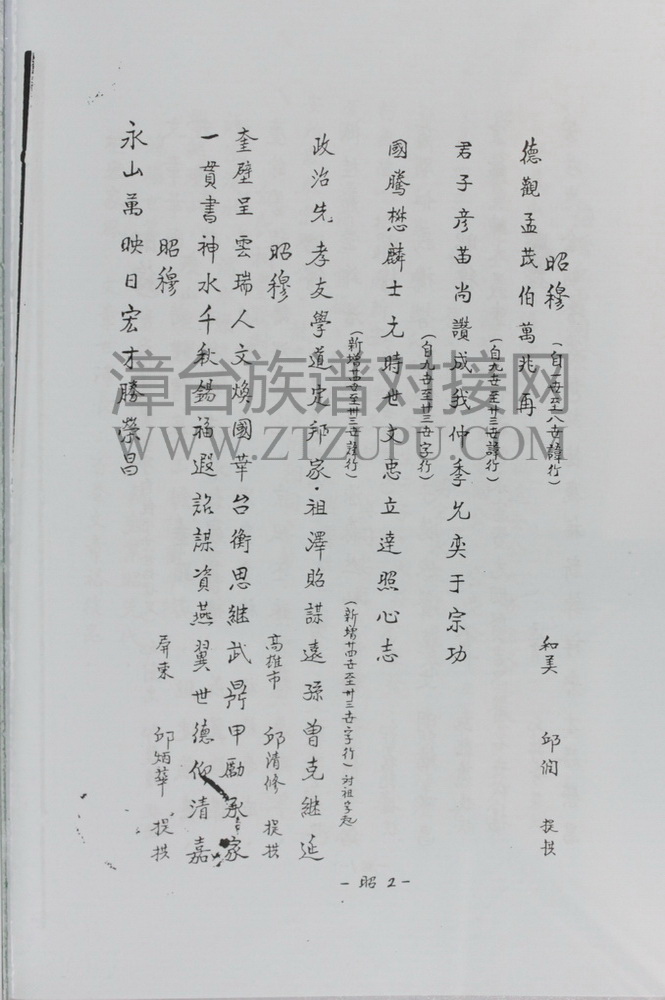 昭穆（自一世至八世諱行） 和美 邱潤 提拱
德觀孟茂伯萬兆再
（自九世至卅三世諱行）
君子彥苗尚讚成我仲季允奕于宗功
（自九世至卅三世字行）
國騰懋麟士元時世文忠立達照心志
（新增廿四世至卅三世諱行） （新增廿四世至卅三世字行）对祖字起
政治先孝友學道定邦家·祖澤貽謀遠孫曾克継延
昭穆 高雄市 邱清修 提拱
奎壁呈雲瑞人文煥國華台衡思継武鼎甲勵承家
一貫書神水千秋錫福遐詒謀資燕翼世德仰清嘉
昭穆 屏東 邱炳華 提拱
永山萬映日宏才勝榮昌
-昭2-
漳台族谱对接网
WWW.ZTZUPU.COM